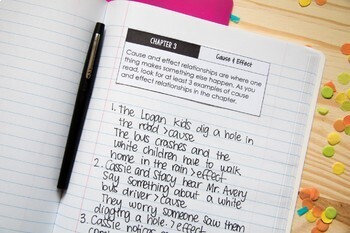 CHAPTER 3
Cause & Effect
Cause and effect relationships are where one
thing makes something else happen. As you
read, look for at least 3 examples of cause
and effect relationships in the chapter.
1. The Logan kids dig a hole in
the road > cause
The bus crashes and the
white children have to walk
home in the rain > effect
2. Cassie and Stacey hear Mr. Avery
say something about a white
bus driver > cause
They worry someone saw them
digging a hole. > effect
3. Cassie notices